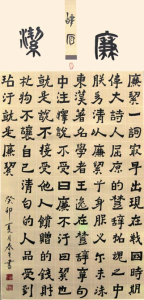 廉潔
廉絜一詞最早出現在戰國時期
偉大詩人屈原的楚辭招魂之中
朕幼清以廉絜兮身服義而未沫
東漢著名學者王逸在楚辭章句
中注釋說不受曰廉不汙曰絜也
就是說不接受他人饋贈的錢財
礼物不讓自己清白的人品受到
玷汙就是廉絜
癸卯夏月